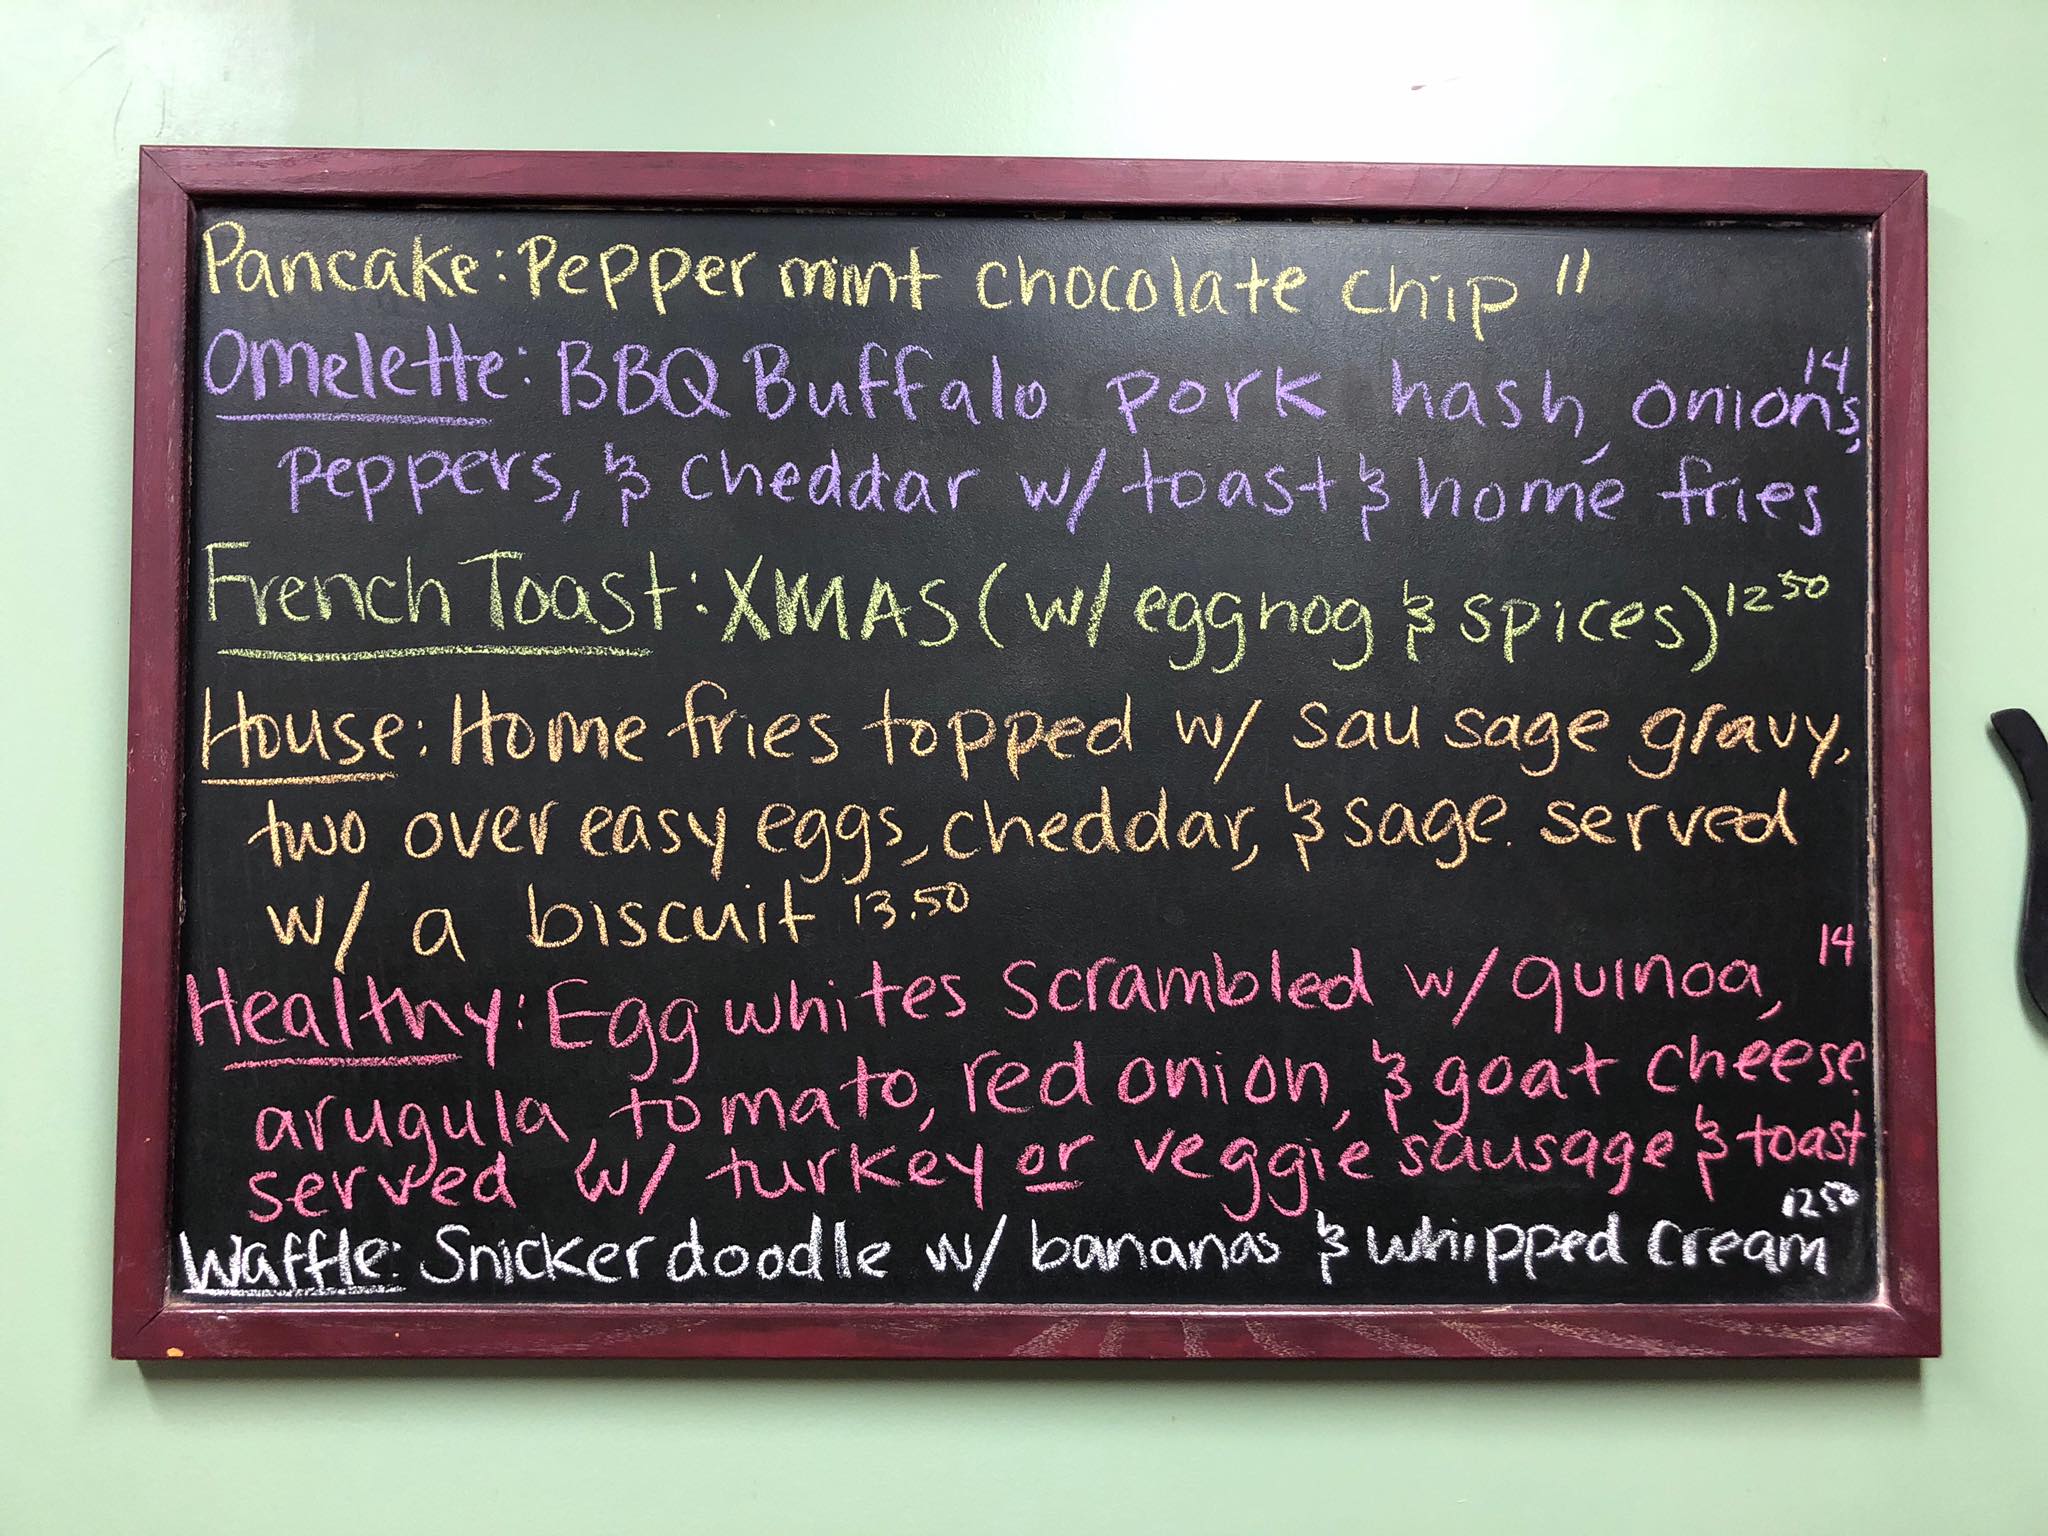 Pancake: Peppermint chocolate chip 11
Omelette: BBQ Buffalo pork hash, onions, 14
peppers, & cheddar w/ toast & home fries
French Toast: XMAS (w/ eggnog & spices) 12 50
House: Home fries topped w/ sausage gravy,
two over easy eggs, cheddar, & sage. served
w/ a biscuit 13.50
Healthy: Egg whites scrambled w/ quinoa, 14
arugula, tomato, red onion, & goat cheese.
served w/ turkey or veggie sausage & toast
Waffle: Snickerdoodle w/ bananas & whipped cream 12 50